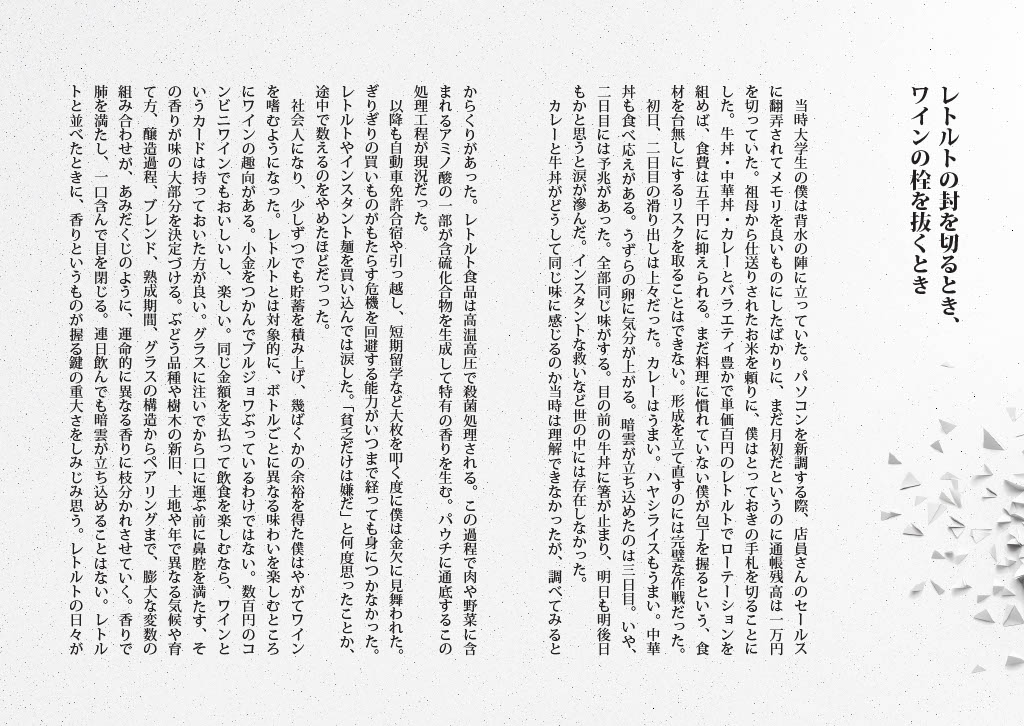 レトルトの封を切るとき、
ワインの栓を抜くとき
　当時大学生の僕は背水の陣に立っていた。パソコンを新調する際、店員さんのセールス
に翻弄されてメモリを良いものにしたばかりに、まだ月初だというのに通帳残高は一万円
を切っていた。祖母から仕送りされたお米を頼りに、僕はとっておきの手札を切ることに
した。牛丼・中華丼・カレーとバラエティ豊かで単価百円のレトルトでローテーションを
組めば、食費は五千円に抑えられる。まだ料理に慣れていない僕が包丁を握るという、食
材を台無しにするリスクを取ることはできない。形成を立て直すのには完璧な作戦だった。
　初日、二日目の滑り出しは上々だった。カレーはうまい。ハヤシライスもうまい。中華
丼も食べ応えがある。うずらの卵に気分が上がる。暗雲が立ち込めたのは三日目。いや、
二日目には予兆があった。全部同じ味がする。目の前の牛丼に箸が止まり、明日も明後日
もかと思うと涙が滲んだ。インスタントな救いなど世の中には存在しなかった。
　カレーと牛丼がどうして同じ味に感じるのか当時は理解できなかったが、調べてみると
からくりがあった。レトルト食品は高温高圧で殺菌処理される。この過程で肉や野菜に含
まれるアミノ酸の一部が含硫化合物を生成して特有の香りを生む。パウチに通底するこの
処理工程が現況だった。
　以降も自動車免許合宿や引っ越し、短期留学など大枚を叩く度に僕は金欠に見舞われた。
ぎりぎりの買いものがもたらす危機を回避する能力がいつまで経っても身につかなかった。
レトルトやインスタント麺を買い込んでは涙した。「貧乏だけは嫌だ」と何度思ったことか、
途中で数えるのをやめたほどだっった。
　社会人になり、少しずつでも貯蓄を積み上げ、幾ばくかの余裕を得た僕はやがてワイン
を嗜むようになった。レトルトとは対象的に、ボトルごとに異なる味わいを楽しむところ
にワインの趣向がある。小金をつかんでブルジョワぶっているわけではない。数百円のコ
ンビニワインでもおいしいし、楽しい。同じ金額を支払って飲食を楽しむなら、ワインと
いうカードは持っておいた方が良い。グラスに注いでから口に運ぶ前に鼻腔を満たす、そ
の香りが味の大部分を決定づける。ぶどう品種や樹木の新旧、土地や年で異なる気候や育
て方、醸造過程、ブレンド、熟成期間、グラスの構造からペアリングまで、膨大な変数の
組み合わせが、あみだくじのように、運命的に異なる香りに枝分かれさせていく。香りで
肺を満たし、一口含んで目を閉じる。連日飲んでも暗雲が立ち込めることはない。レトル
トと並べたときに、香りというものが握る鍵の重大さをしみじみ思う。レトルトの日々が